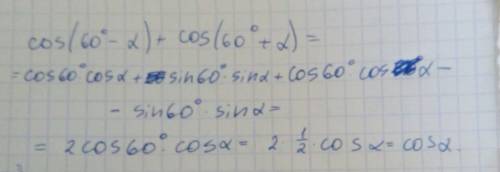 cos(60° - α) + cos(60° + α) =
= cos60° cosα + sin60° · sinα + cos60° cos α -
- sin60° · sinα =
= 2cos60° · cosα = 2 · 1/2 · cosα = cosα.